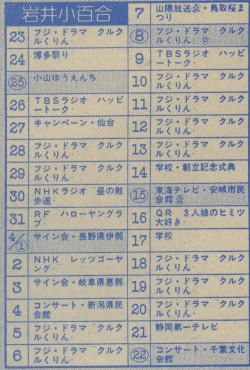 岩井小百合
23 フジ・ドラマ クルクルくりん
24 博多祭り
㉕ 小山ゆうえんち
26 TBSラジオ ハッピートーク
27 キャンペーン・仙台
28 フジ・ドラマ クルクルくりん
29 フジ・ドラマ クルクルくりん
30 NHKラジオ 昼の散歩道
31 RF ハローヤングラブ
4/① サイン会・長野県伊那
2 NHK レッツゴーヤング
3 サイン会・岐阜県恵那
4 コンサート・新潟県民会館
5 フジ・ドラマ クルクルくりん
6 フジ・ドラマ クルクルくりん
7 山陰放送・鳥取桜まつり
⑧ フジ・ドラマ クルクルくりん
9 TBSラジオ ハッピートーク
10 フジ・ドラマ クルクルくりん
11 フジ・ドラマ クルクルくりん
12 フジ・ドラマ クルクルくりん
13 フジ・ドラマ クルクルくりん
14 学校・創立記念式典
⑮ 東海テレビ・安城市民会館
16 QR 3人娘のヒミツ大好き
17 学校
18 フジ・ドラマ クルクルくりん
19 フジ・ドラマ クルクルくりん
20 フジ・ドラマ クルクルくりん
21 静岡第一テレビ
㉒ コンサート・千葉文化会館